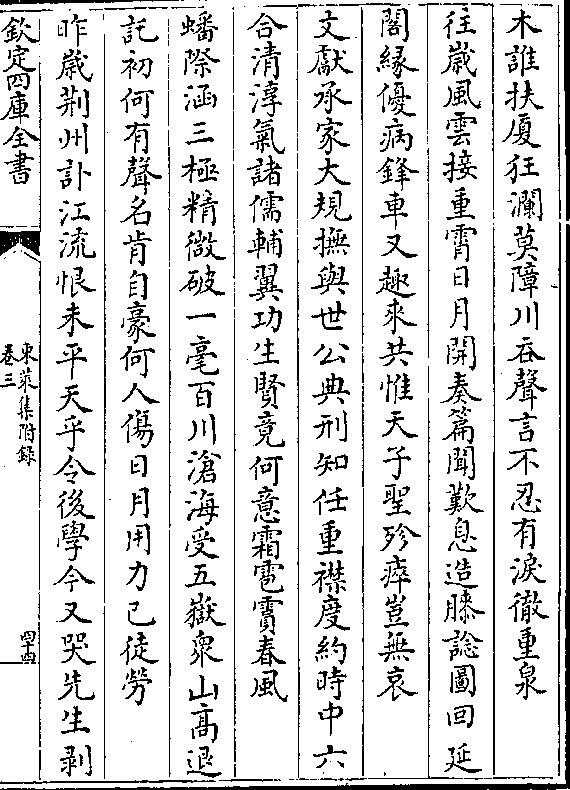 木誰扶厦狂瀾莫障川吞聲言不忍有淚徹重泉
往歲風雲接重霄日月開奏篇聞歎息造膝諗圖回延
閣緣優病鋒車又趣來共惟天子聖殄瘁豈無哀
文獻承家大規撫與世公典刑知任重襟度約時中六
合清淳氣諸儒輔翼功生賢竟何意霜雹霣春風
蟠際涵三極精微破一毫百川滄海受五嶽衆山髙退
託初何有聲名肯自豪何人傷日月用力已徒勞
昨歲荆州訃江流恨未平天乎令後學今又哭先生剥
欽定四庫全書
東萊集附録
卷三
四十四